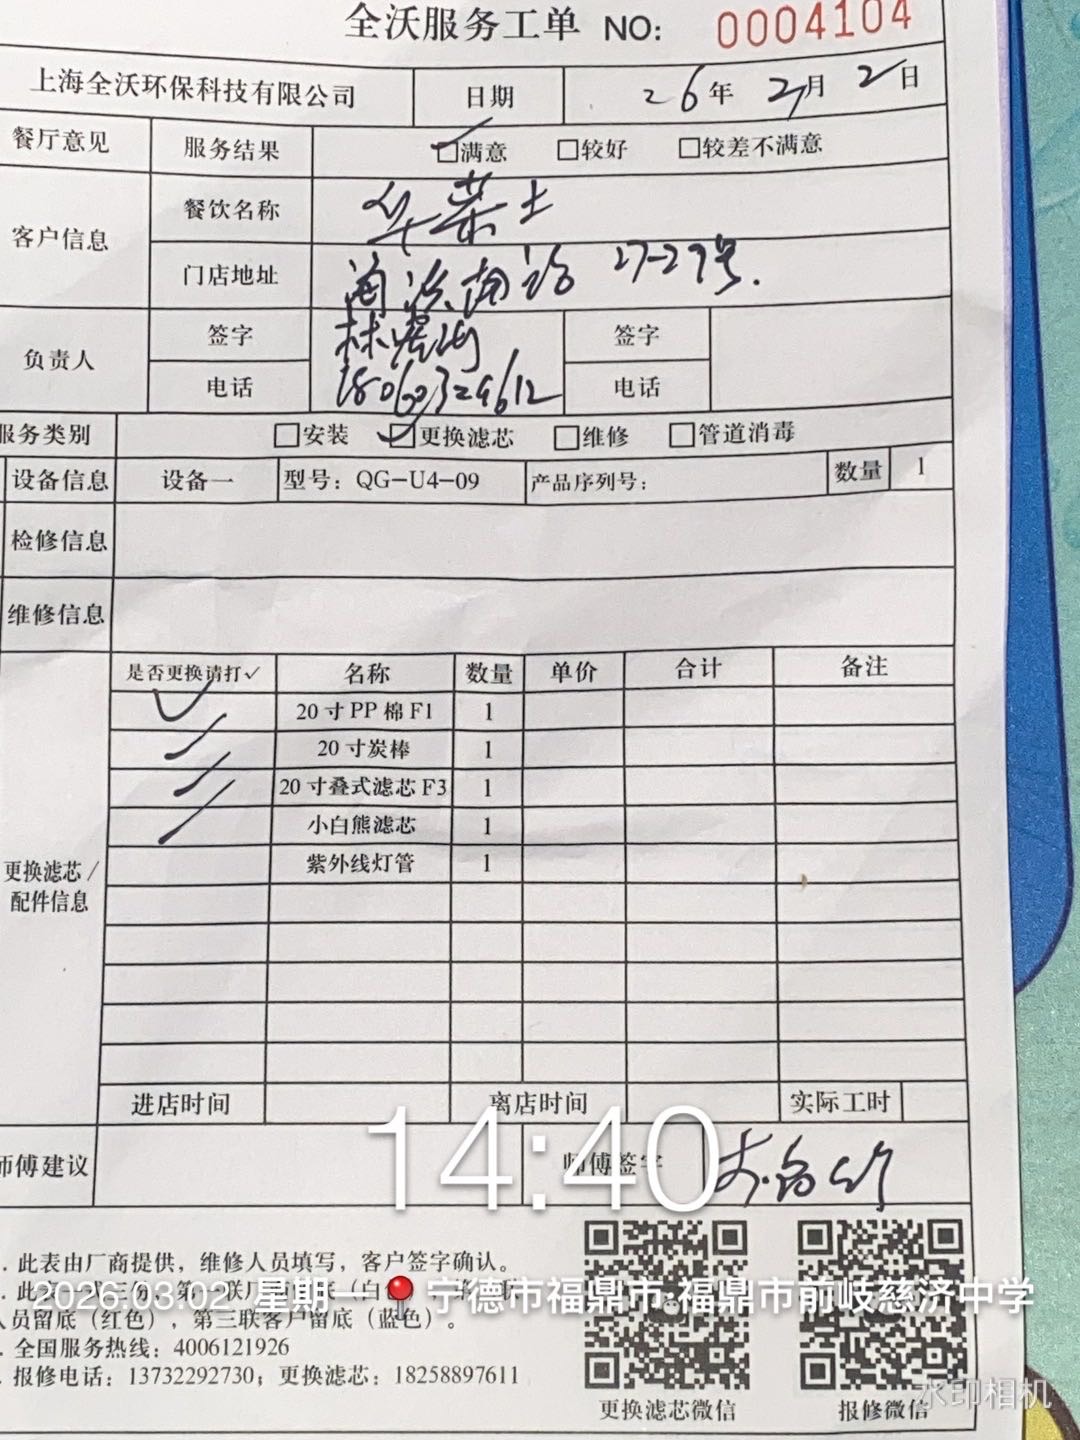 全沃服务工单 NO: 0004104
上海全沃环保科技有限公司 日期 26年 3月 2日
餐厅意见 服务结果 ☑满意 □较好 □较差不满意
客户信息 餐饮名称 华莱士
门店地址 南路 27-29号.
负责人 签字 林 签字
电话 18060329612 电话
服务类别 □安装 ☑更换滤芯 □维修 □管道消毒
设备信息 设备一 型号：QG-U4-09 产品序列号： 数量 1
检修信息
维修信息
是否更换请打✓ 名称 数量 单价 合计 备注
✓ 20寸PP棉F1 1
✓ 20寸炭棒 1
✓ 20寸叠式滤芯F3 1
✓ 小白熊滤芯 1
紫外线灯管 1
更换滤芯/
配件信息
进店时间 离店时间 实际工时
14:40
师傅建议 师傅签字
. 此表由厂商提供，维修人员填写，客户签字确认。
2026.03.02 星期一 宁德市福鼎市·福鼎市前岐慈济中学
人员留底（红色），第三联客户留底（蓝色）。
. 全国服务热线：4006121926
. 报修电话：13732292730；更换滤芯：18258897611
更换滤芯微信 报修微信
水印相机